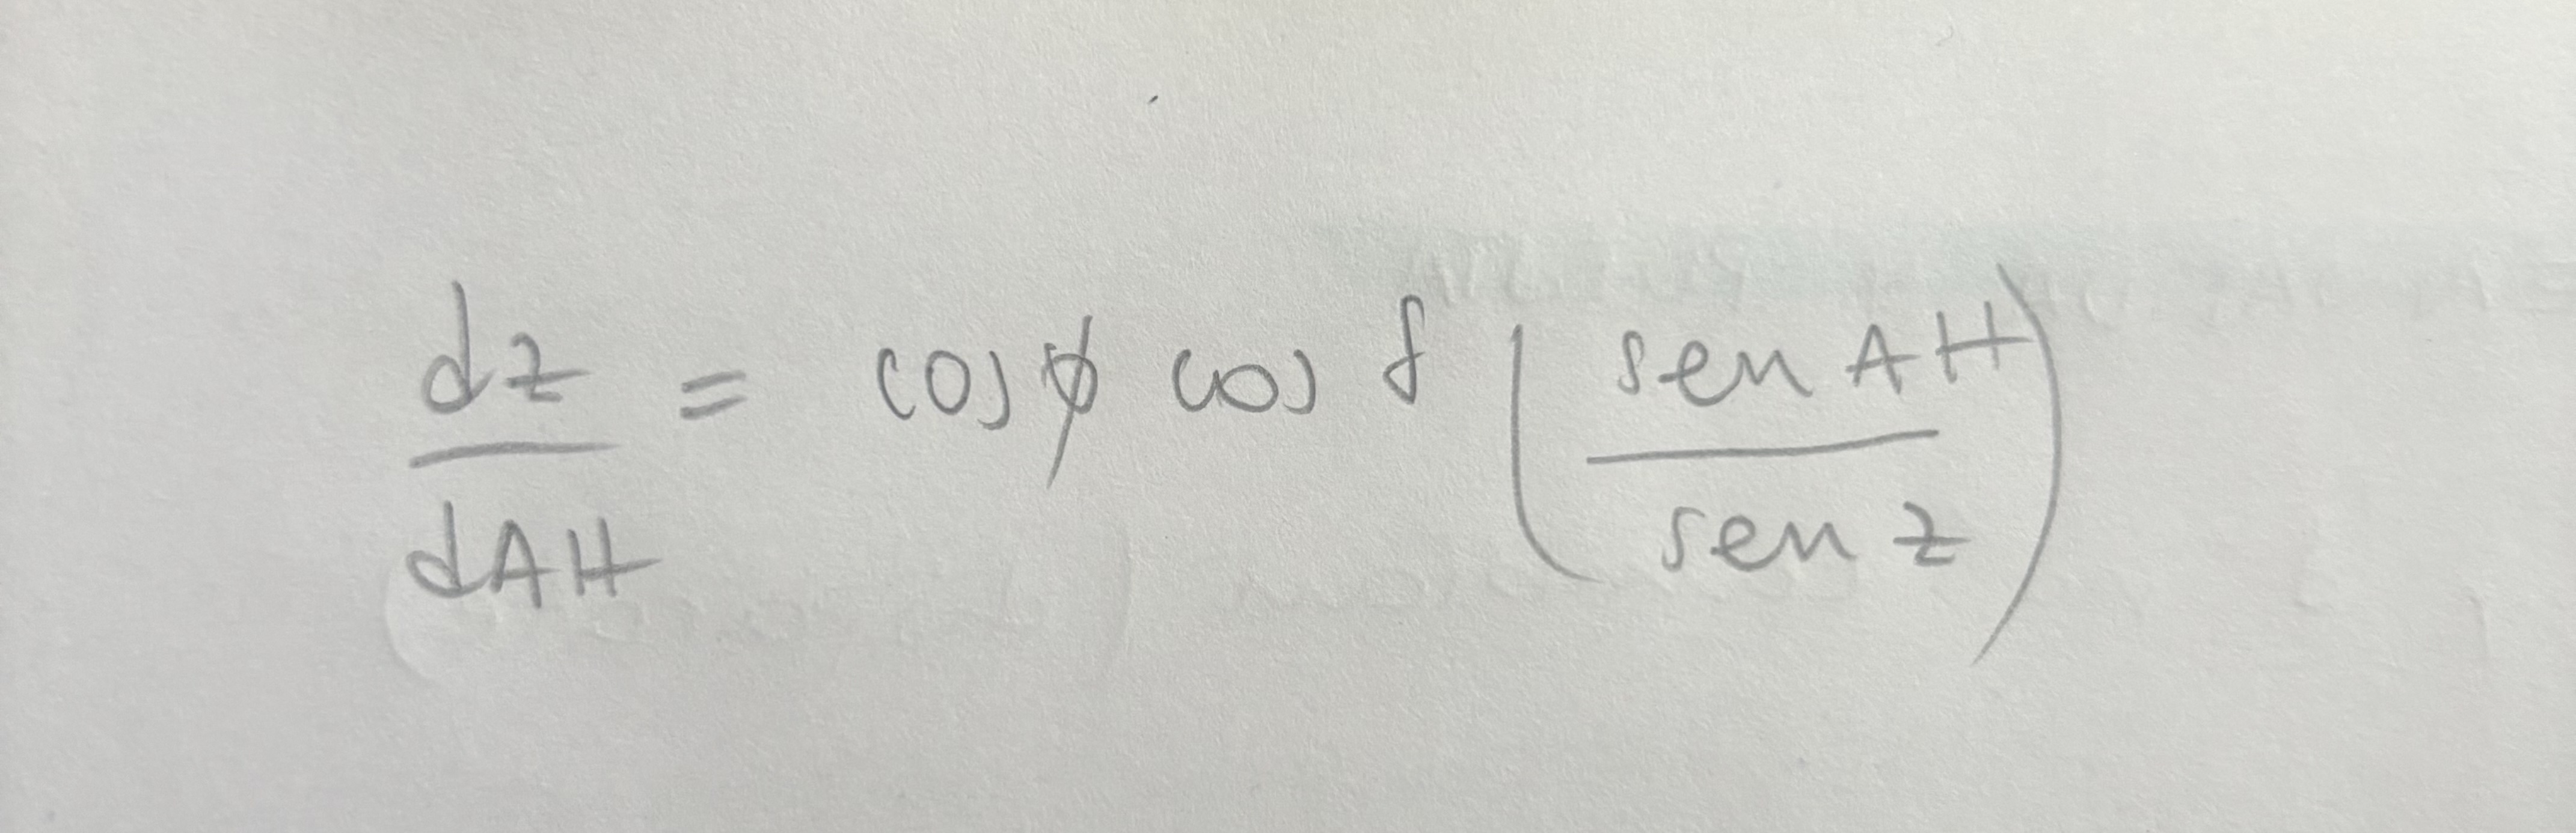 dz/dAH = cos ϕ cos δ (sen AH / sen z)